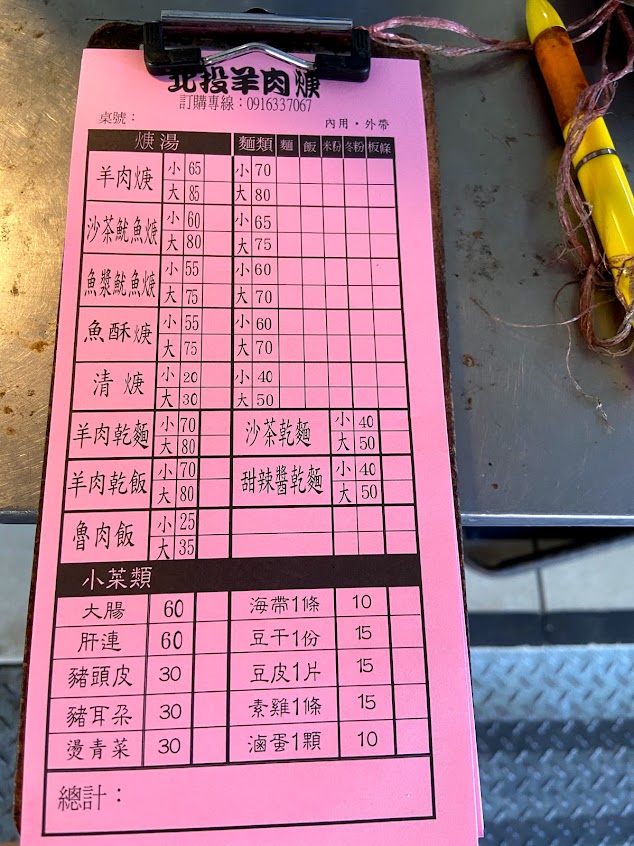 北投羊肉焿
訂購專線：0916337067
桌號：
內用・外帶
焿湯 麵類 麵 飯 米粉 冬粉 板條
羊肉焿 小 65 小 70
大 85 大 80
沙茶魷魚焿 小 60 小 65
大 80 大 75
魚漿魷魚焿 小 55 小 60
大 75 大 70
魚酥焿 小 55 小 60
大 75 大 70
清焿 小 20 小 40
大 30 大 50
羊肉乾麵 小 70 沙茶乾麵 小 40
大 80 大 50
羊肉乾飯 小 70 甜辣醬乾麵 小 40
大 80 大 50
魯肉飯 小 25
大 35
小菜類
大腸 60 海帶1條 10
肝連 60 豆干1份 15
豬頭皮 30 豆皮1片 15
豬耳朵 30 素雞1條 15
燙青菜 30 滷蛋1顆 10
總計：